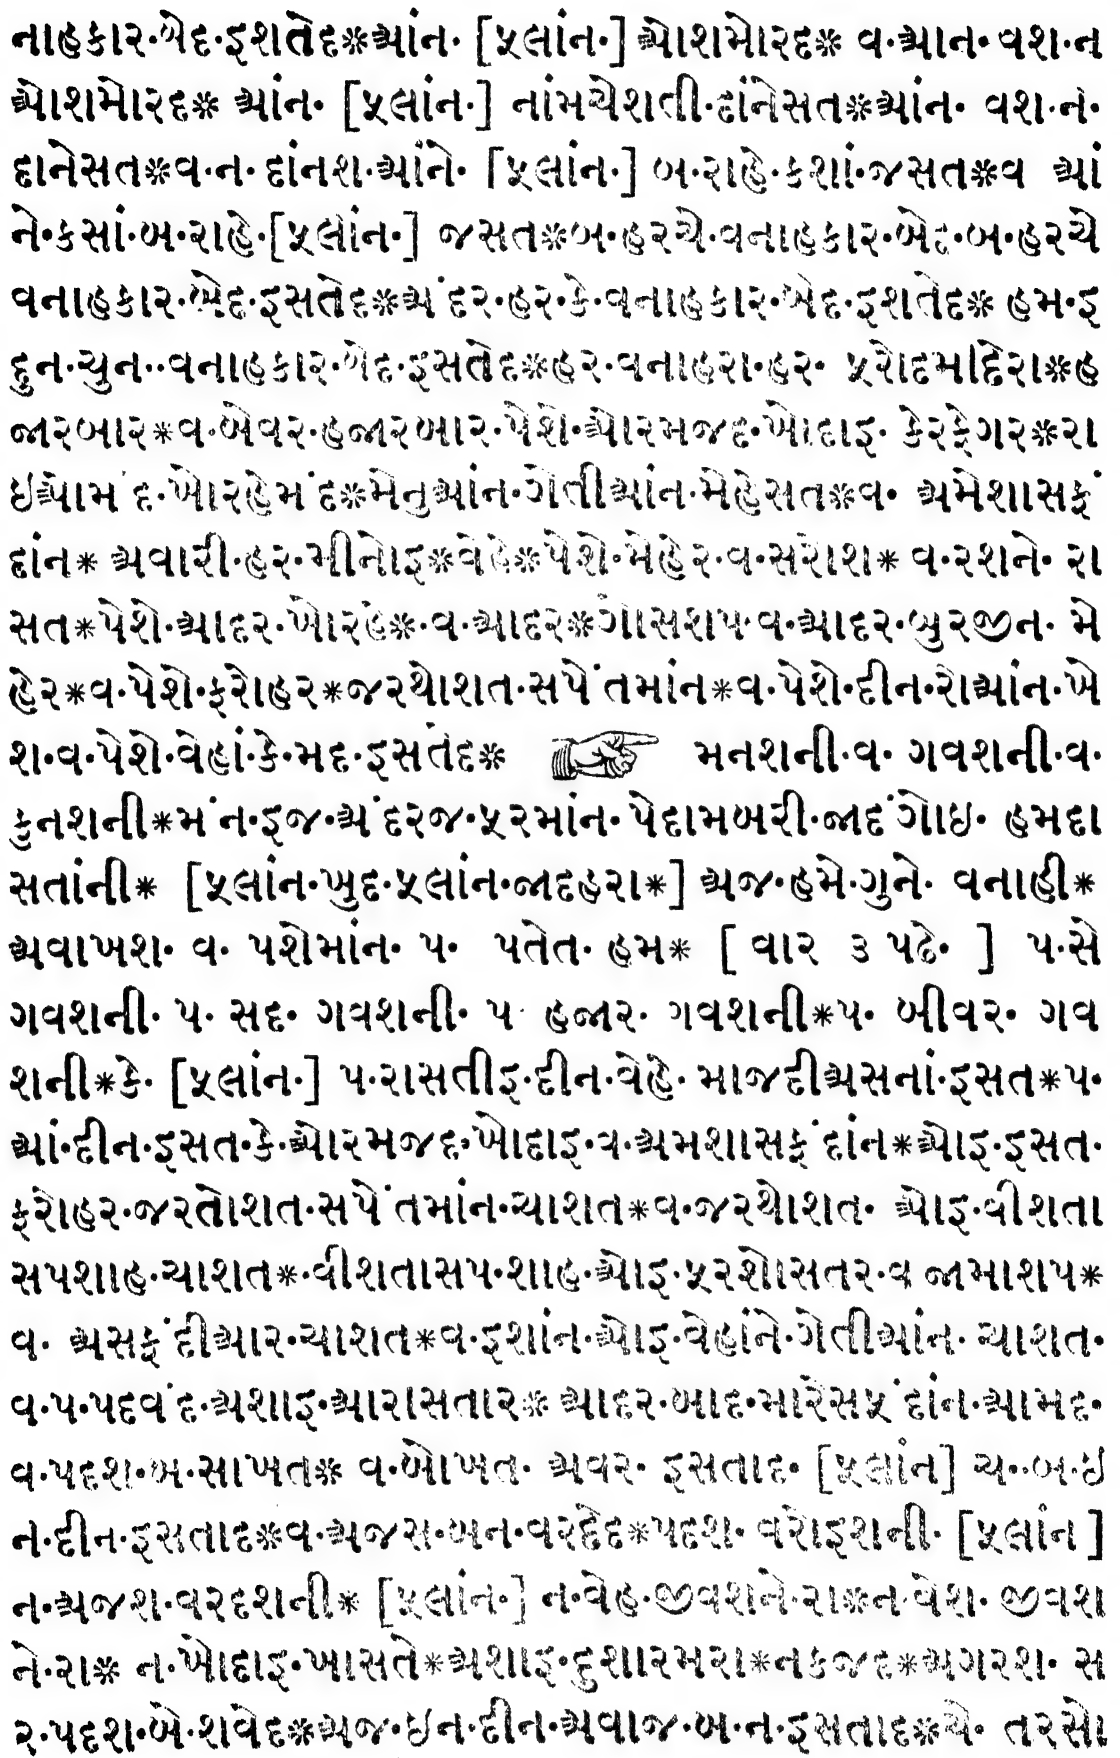 નાહકાર·બેદ·ઇશતેદ※આંન· [ફલાંન·] ઓશમોરદ※ વ·આન· વશ·ન
ઓશમોરદ※ આંન· [ફલાંન·] નાંમચેશતી·દાંનેસત※આંન· વશ·ન·
દાનેસત※વ·ન· દાંનશ·આંને· [ફલાંન·] બ·રાહે·કશાં·જસત※વ આં
ને·કસાં·બ·રાહે·[ફલાંન·] જસત※બ·હરચે·વનાહકાર·બેદ·બ·હરચે
વનાહકાર·બેદ·ઇસતેદ※અંદર·હર·કે·વનાહકાર·બેદ·ઇશતેદ※ હમ·ઇ
દુન·ચુન··વનાહકાર·બેદ·ઇસતેદ※હર·વનાહરા·હર· ફરોદમાંદેરા※હ
જારબાર*વ·બેવર·હજારબાર·પેશે·ઓરમજદ·ખોદાઇ· કેરફેગર※રા
ઇઓમંદ·ખોરહેમંદ※મેનુઆંન·ગેતીઆંન·મેહેસત※વ· અમેશાસફં
દાંન* અવારી·હર·મીનોઇ※વેહે※પેશે·મેહેર·વ·સરોશ* વ·રશને· રા
સત*પેશે·આદર·ખોરહે※·વ·આદર※ગોસશપ·વ·આદર·બુરજીન· મે
હેર*વ·પેશે·ફરોહર*જરથોશત·સપેંતમાંન*વ·પેશે·દીન·રોઆંન·ખે
શ·વ·પેશે·વેહાં·કે·મદ·ઇસતેદ※ ☞ મનશની·વ· ગવશની·વ·
કુનશની*મંન·ઇજ·અંદરજ·ફરમાંન· પેદામબરી·જાદંગોઇ· હમદા
સતાંની* [ફલાંન·ખુદ·ફલાંન·જાદહરા*] અજ·હમે·ગુને· વનાહી*
અવાખશ· વ· પશેમાંન· પ· પતેત· હમ* [ વાર ૩ પઢે· ] પ·સે
ગવશની· પ· સદ· ગવશની· પ· હજાર· ગવશની*પ· બીવર· ગવ
શની*કે· [ફલાંન·] પ·રાસતીઇ·દીન·વેહે· માજદીઅસનાં·ઇસત*પ·
આં·દીન·ઇસત·કે·ઓરમજદ·ખોદાઇ·વ·અમશાસફંદાંન*ઓઇ·ઇસત·
ફરોહર·જરતોશત·સપેંતમાંન·ચાશત*વ·જરથોશત· ઓઇ·વીશતા
સપશાહ·ચાશત*·વીશતાસપ·શાહ·ઓઇ·ફરશોસતર·વ જામાશપ*
વ· અસફંદીઆર·ચાશત*વ·ઇશાંન·ઓઇ·વેહાંને·ગેતીઆંન· ચાશત·
વ·પ·પદવંદ·અશાઇ·આરાસતાર※ આદર·બાદ·મારેસફંદાંન·આમદ·
વ·પદશ·બ·સાખત※ વ·બોખત· અવર· ઇસતાદ· [ફલાંન] ચ··બ·ઇ
ન·દીન·ઇસતાદ※વ·અજસ·બન·વરદેદ*પદશ· વરોઇશની· [ફલાંન ]
ન·અજશ·વરદશની* [ફલાંન·] ન·વેહ·જીવશને·રા※ન·વેશ· જીવશ
ને·રા※ ન·ખોદાઇ·ખાસતે*અશાઇ·દુશારમરા*નકજદ*અગરશ· સ
ર·પદશ·બે·શવેદ※અજ·ઇન·દીન·અવાજ·બ·ન·ઇસતાદ※ચે· તરસો